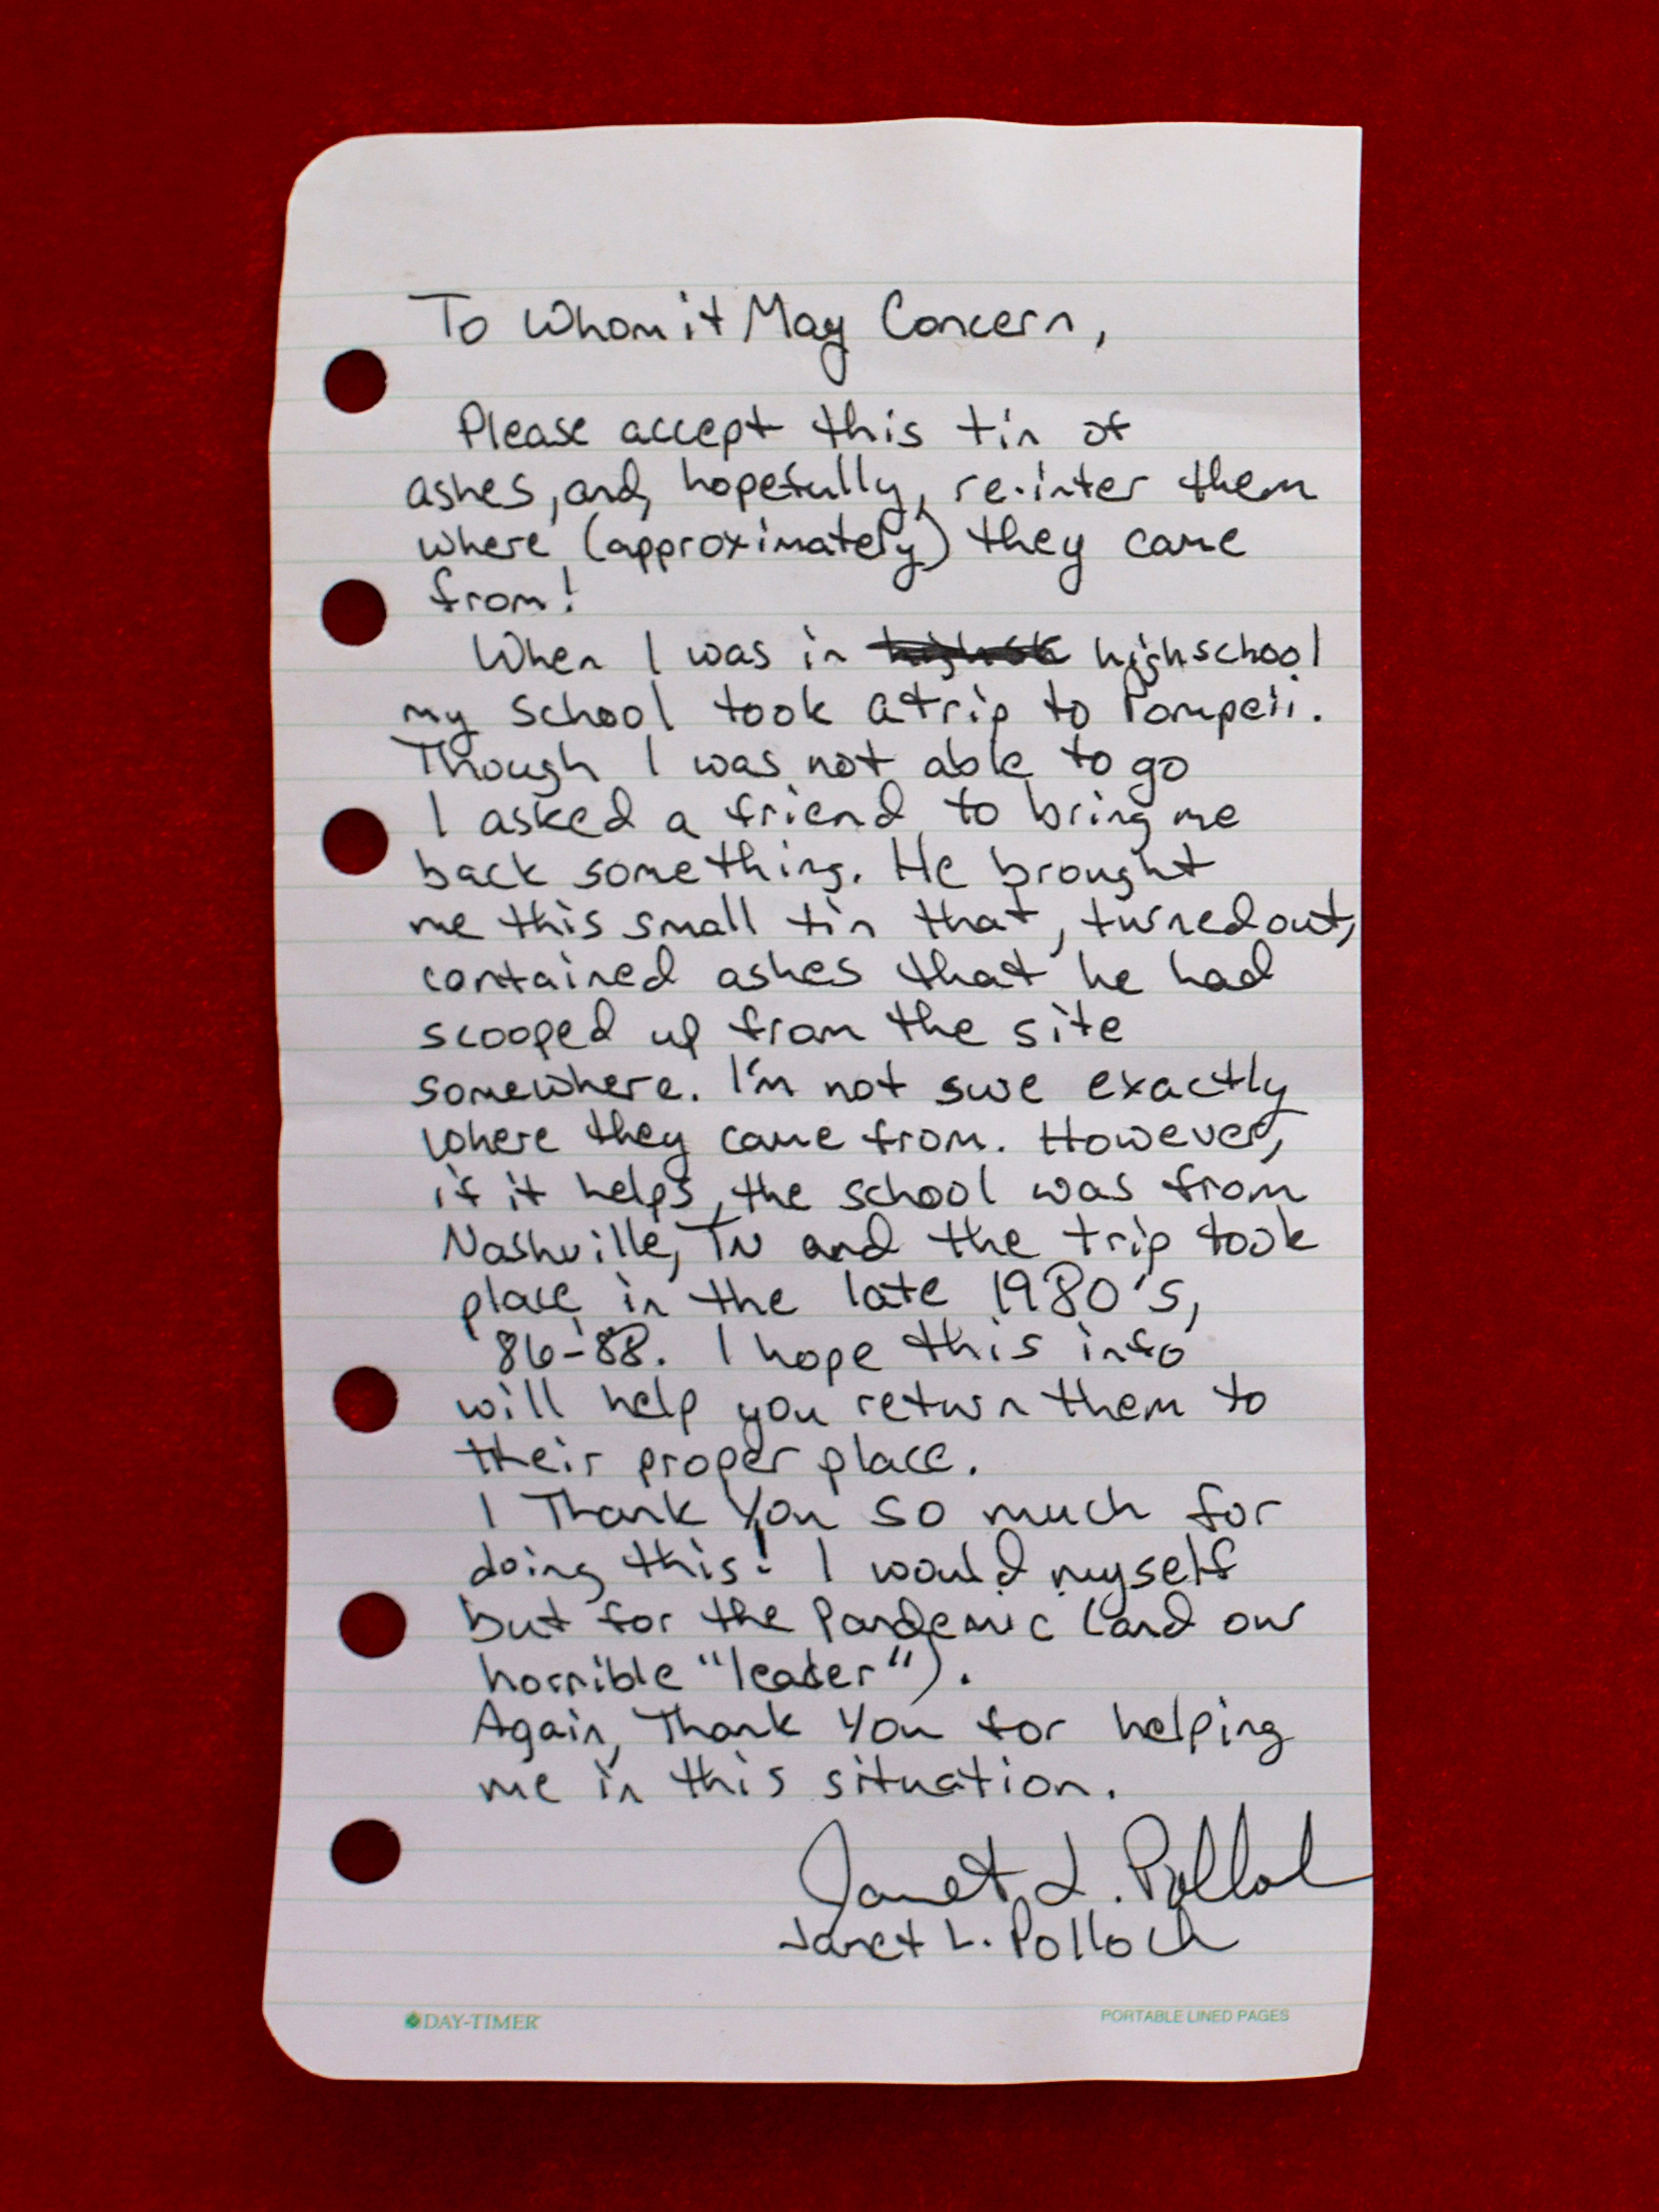 To Whom it May Concern,
Please accept this tin of
ashes, and, hopefully, re-inter them
where (approximately) they came
from!
When I was in highsch highschool
my school took a trip to Pompeii.
Though I was not able to go
I asked a friend to bring me
back something. He brought
me this small tin that, turned out,
contained ashes that he had
scooped up from the site
somewhere. I'm not sure exactly
where they came from. However,
if it helps, the school was from
Nashville, TN and the trip took
place in the late 1980's,
'86-'88. I hope this info
will help you return them to
their proper place.
I Thank You so much for
doing this! I would myself
but for the Pandemic (and our
horrible "leader").
Again, Thank You for helping
me in this situation.
Janet L. Pollock
Janet L. Pollock
DAY-TIMER PORTABLE LINED PAGES